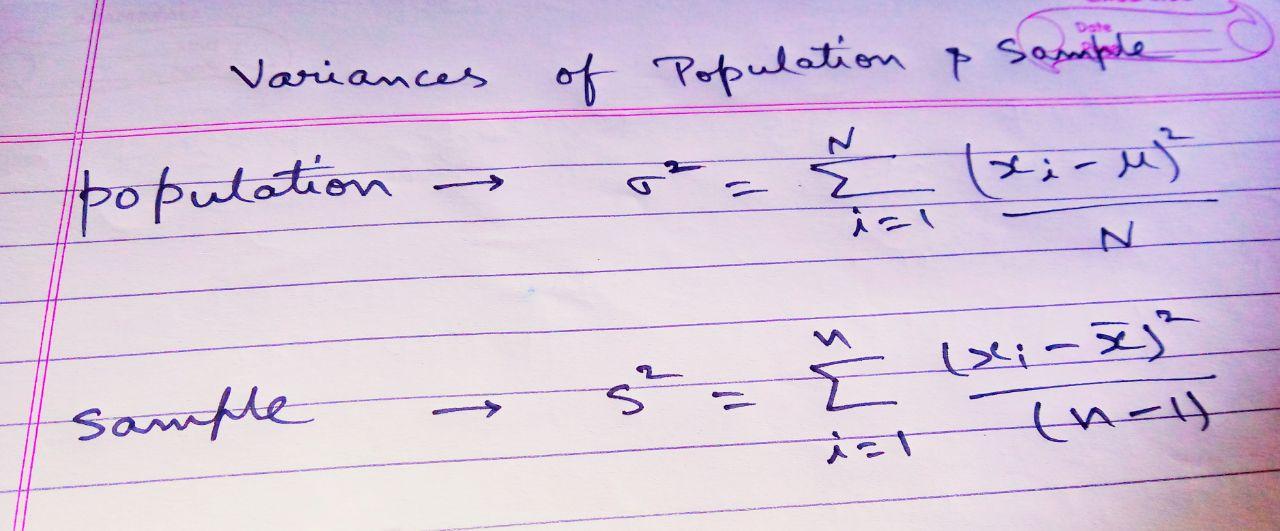 Date
Variances of Population & Sample
population → σ² = N∑i=1 (xi - μ)² / N
sample → s² = n∑i=1 (xi - x̄)² / (n-1)